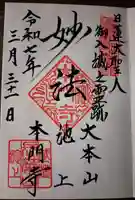 日蓮大聖人
御入滅之霊蹟
大本山
池上
本門寺
妙法
令和七年
三月三十一日